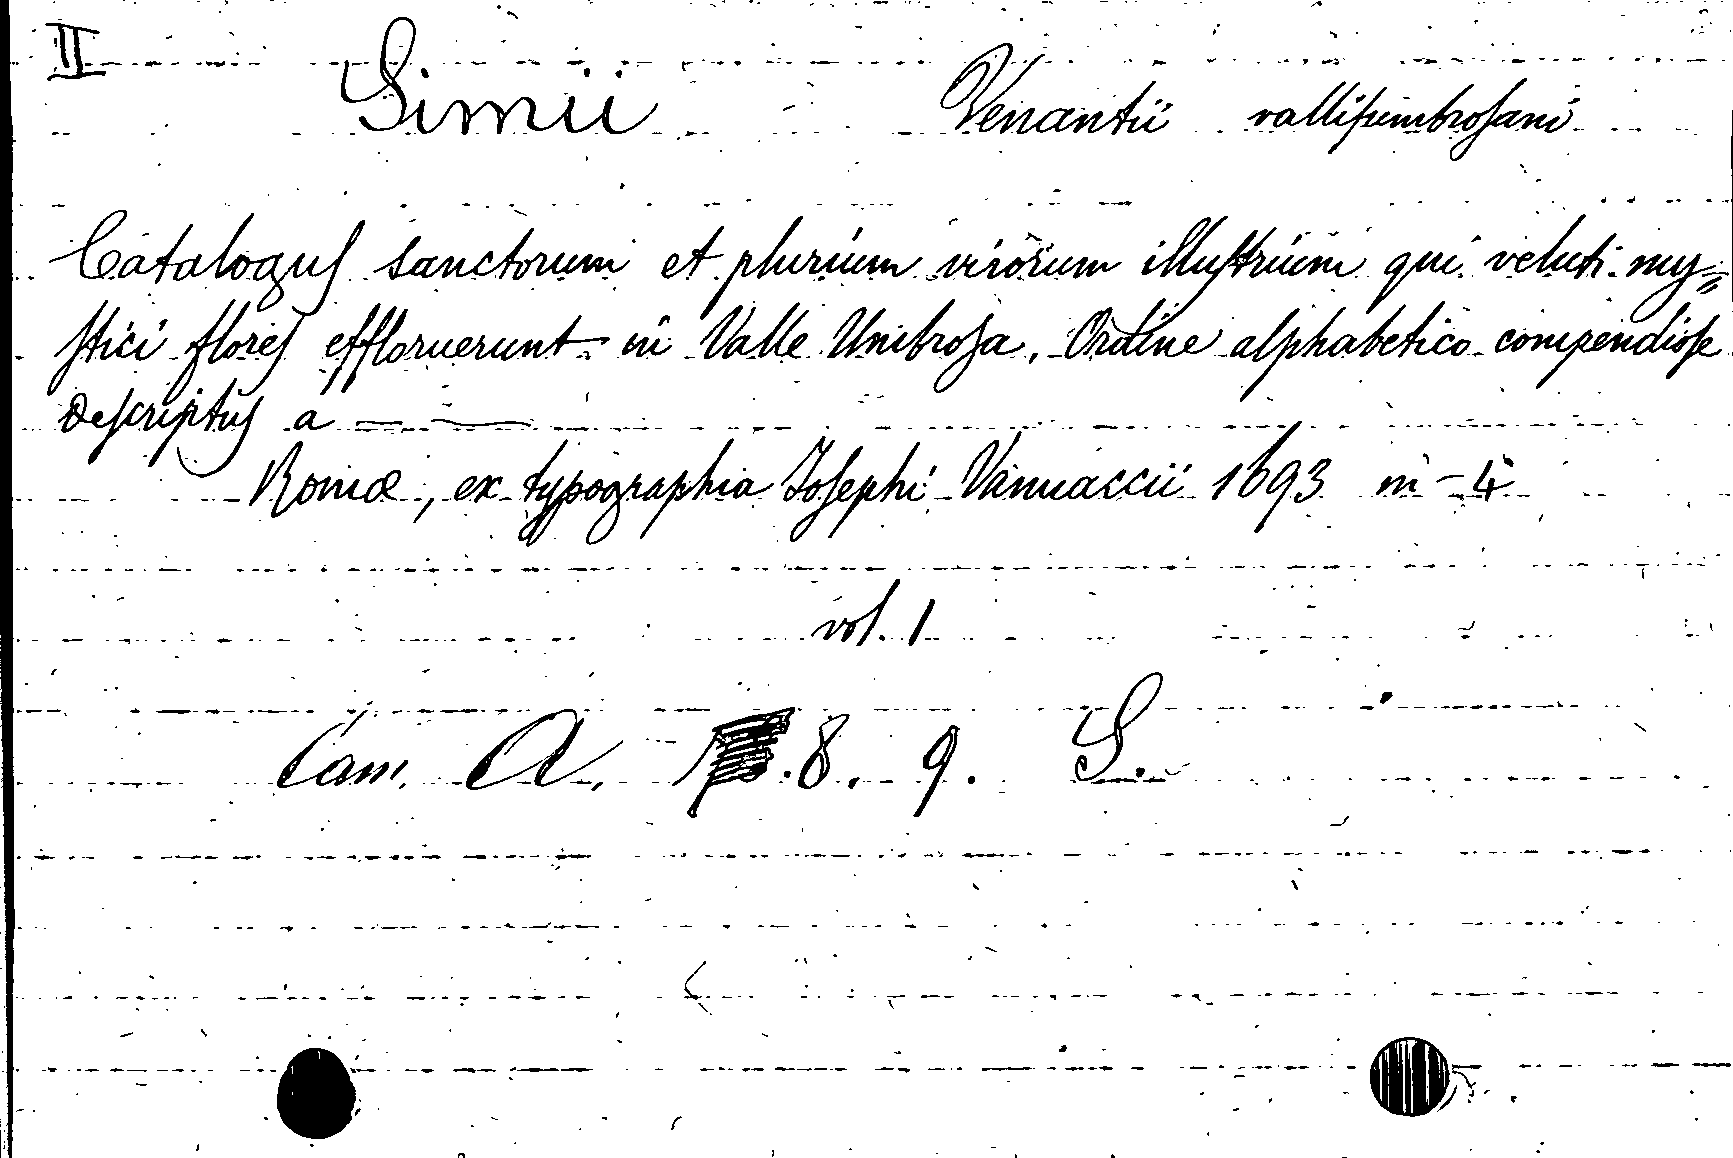 II Simii Venantii vallisumbrosani
Catalogus sanctorum et plurium virorum illustrium qui veluti my=
stici flores effloruerunt in Valle Umbrosa. Ordine alphabetico compendiose
descriptus a — —
Romæ, ex typographia Josephi Vannaccii 1693 in-4
vol. 1
Cam. A. .8. 9. S.